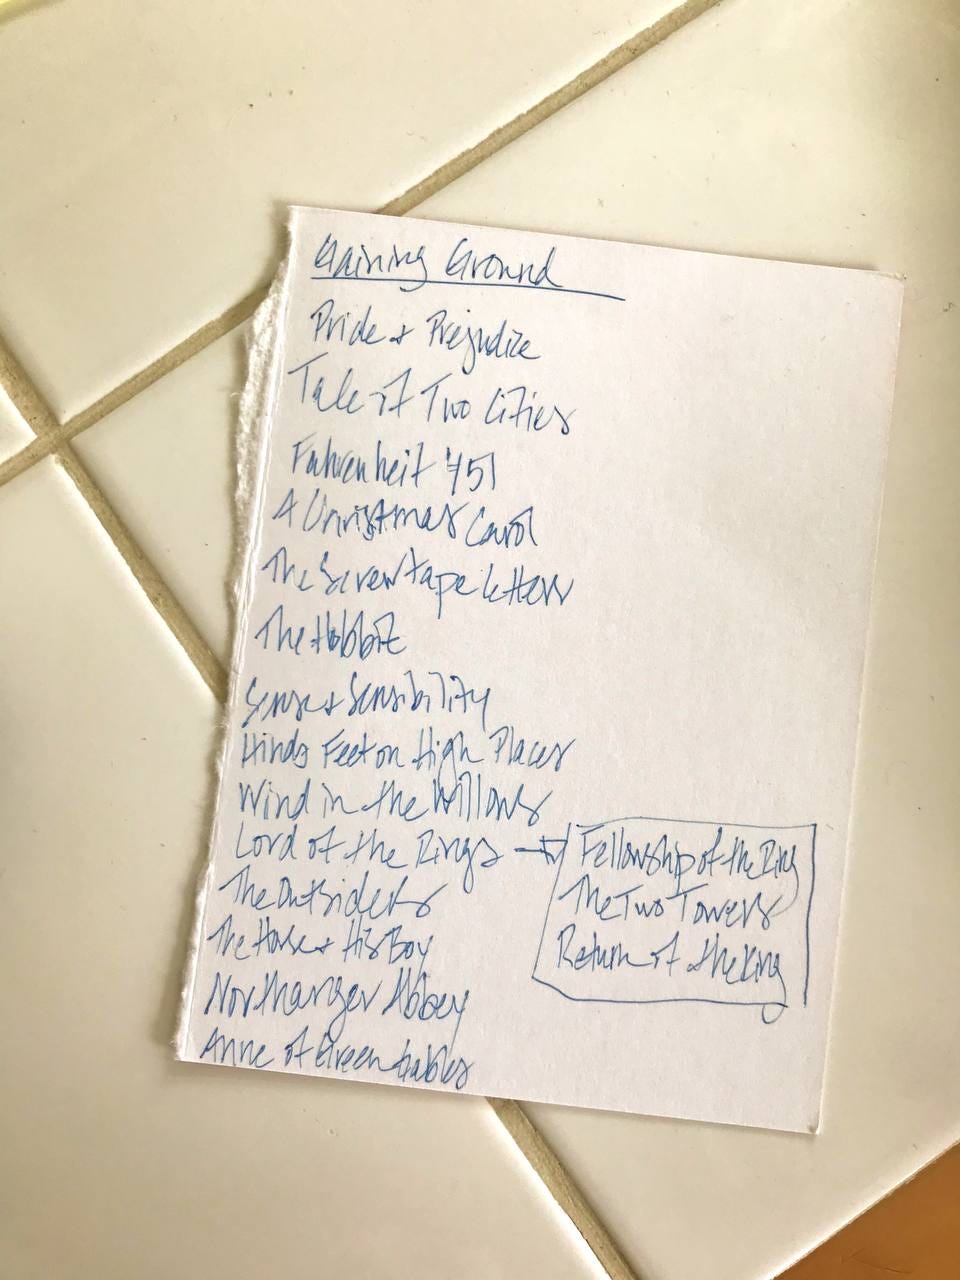 Gaining Ground
Pride & Prejudice
Tale of Two Cities
Fahrenheit 451
A Christmas Carol
The Screwtape Letters
The Hobbit
Sense & Sensibility
Hinds Feet on High Places
Wind in the Willows
Lord of the Rings →
Fellowship of the Ring
The Two Towers
Return of the King
The Outsiders
The Horse & His Boy
Northanger Abbey
Anne of Green Gables